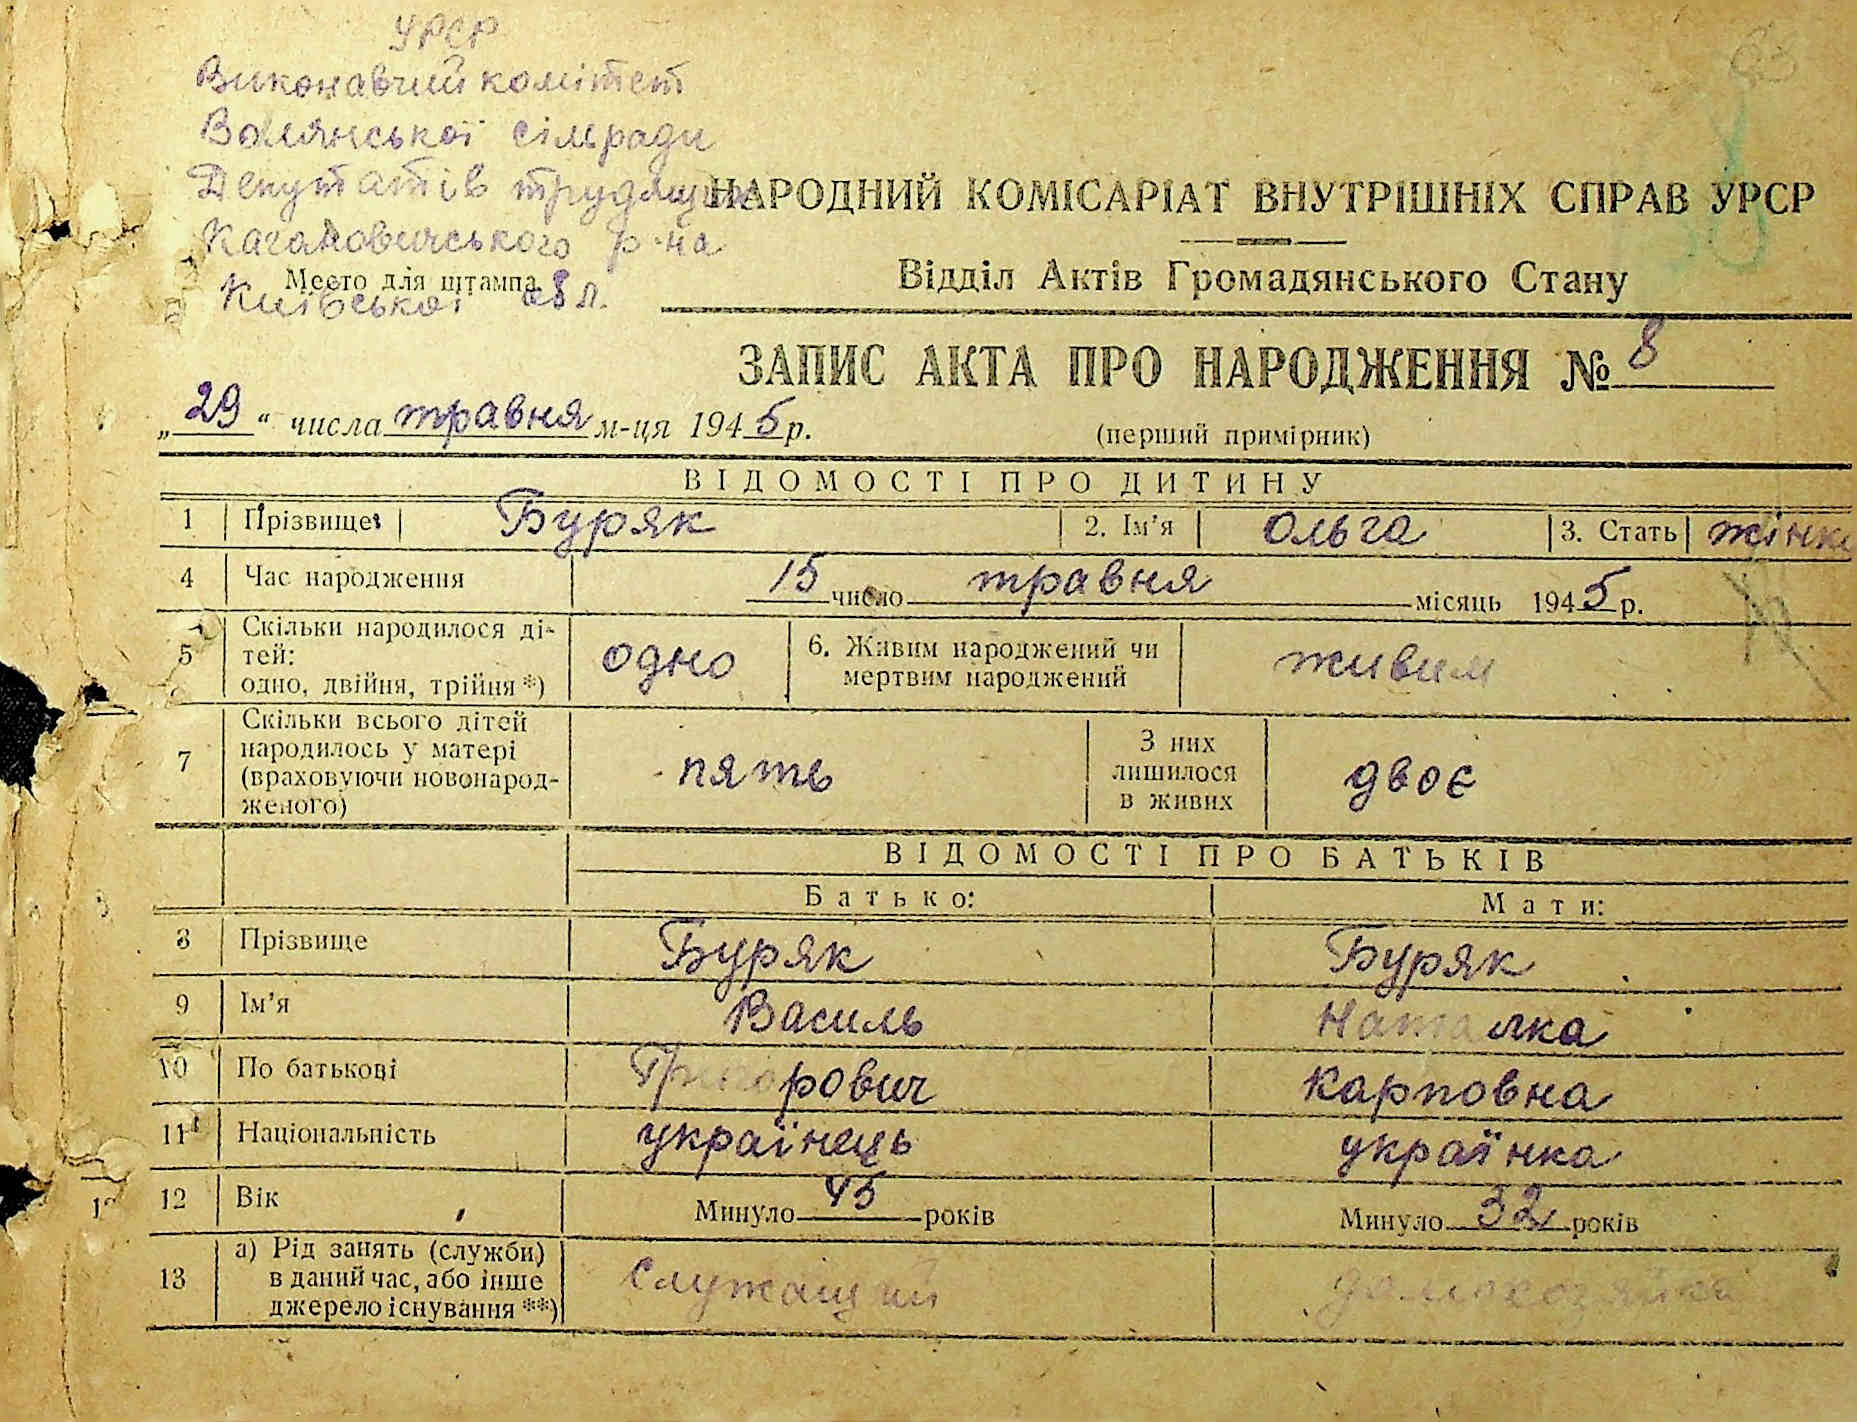 63
УРСР
Виконавчий комітет
Волянської сільради
Депутатів трудящих
Кагановичського р-на
Київської обл.
Место для штампа
НАРОДНИЙ КОМІСАРІАТ ВНУТРІШНІХ СПРАВ УРСР
Відділ Актів Громадянського Стану
ЗАПИС АКТА ПРО НАРОДЖЕННЯ № 8
„29“ числа травня м-ця 1945 р.
(перший примірник)
ВІДОМОСТІ ПРО ДИТИНУ
1 Прізвище Буряк 2. Ім'я Ольга 3. Стать жінка
4 Час народження 15 число травня місяць 1945 р.
5 Скільки народилося ді-
тей:
одно, двійня, трійня *) одно 6. Живим народжений чи
мертвим народжений живим
7 Скільки всього дітей
народилось у матері
(враховуючи новонарод-
женого) пять З них
лишилося
в живих двоє
ВІДОМОСТІ ПРО БАТЬКІВ
Батько: Мати:
8 Прізвище Буряк Буряк
9 Ім'я Василь Наталка
10 По батькові Григорович Карповна
11 Національність українець українка
12 Вік Минуло 45 років Минуло 32 років
13 а) Рід занять (служби)
в даний час, або інше
джерело існування **) Служащий домохозяйка